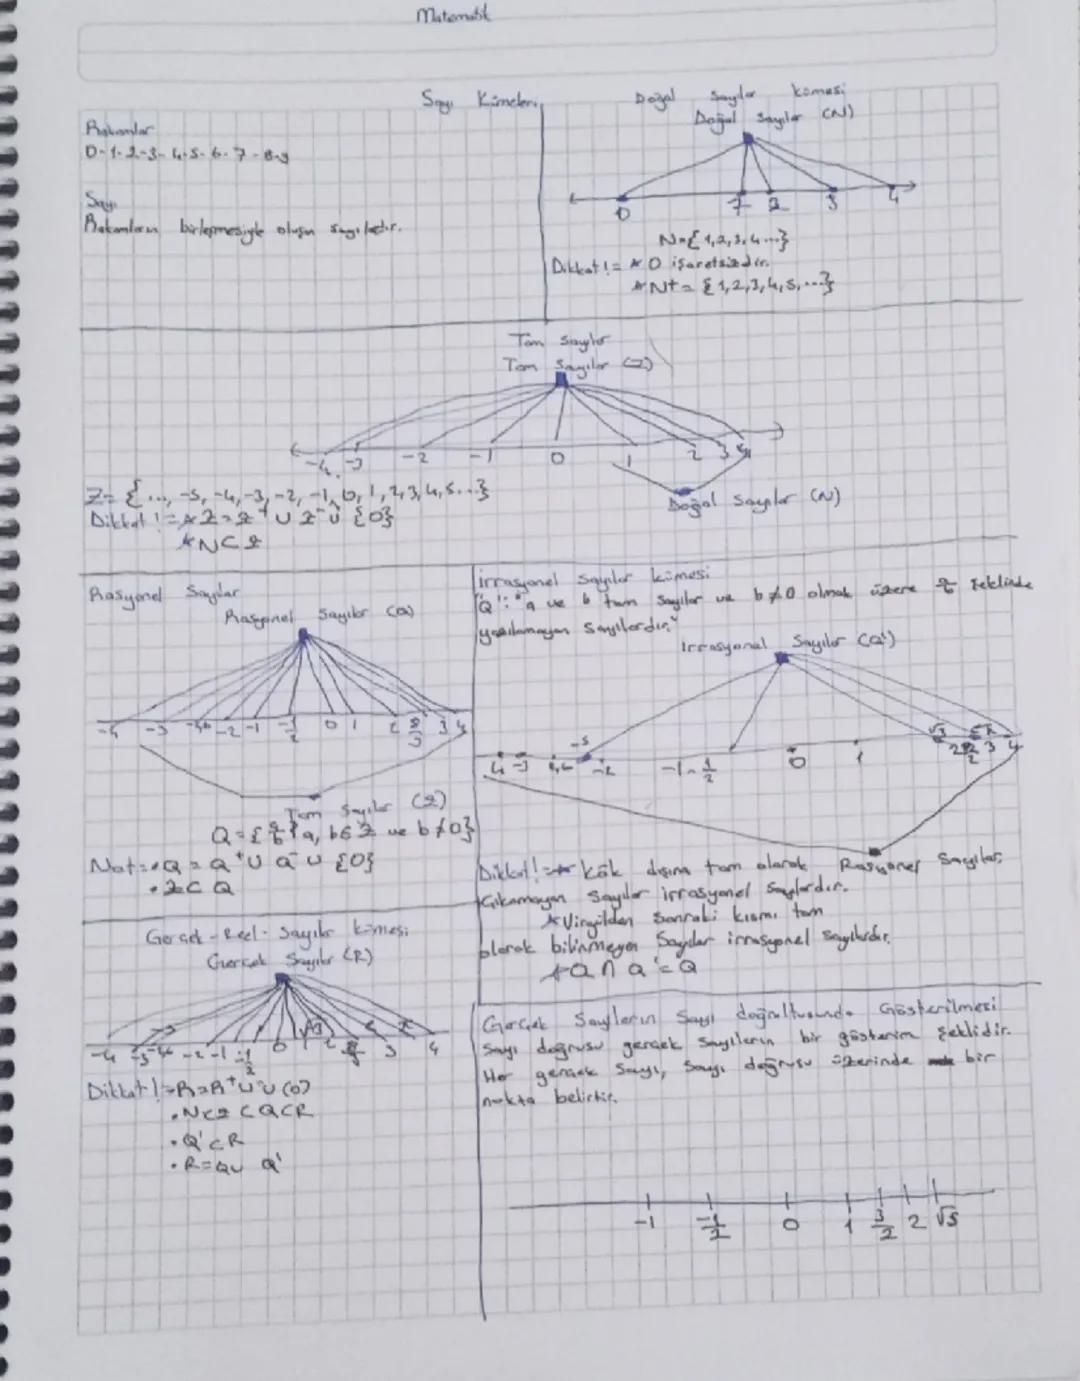 Matematik
Sayı Kümeleri
Rakamlar
0-1-2-3-4-5-6-7-8-9
Sayı
Rakamların birleşmesiyle oluşan sayılardır.
Doğal Sayılar kümesi
Doğal Sayılar (N)
0 1 2 3 4
N={1,2,3,4...}
Dikkat!= * 0 işaretsizdir.
* N+ = {1,2,3,4,5,...}
Tam Sayılar
Tam Sayılar (Z)
-4 -3 -2 -1 0 1 2 3 4
Doğal Sayılar (N)
Z= {..., -5, -4, -3, -2, -1, 0, 1, 2, 3, 4, 5...}
Dikkat!= * Z = Z+ ∪ Z- ∪ {0}
* N ⊂ Z
Rasyonel Sayılar
Rasyonel Sayılar (Q)
-4 -3 -2 -1 -1/2 0 1 2 3 4
Tam Sayılar (Z)
Q = { a/b | a, b ∈ Z ve b ≠ 0}
Not= • Q = Q+ ∪ Q- ∪ {0}
• Z ⊂ Q
İrrasyonel Sayılar kümesi
"Q'": "a ve b tam sayılar ve b≠0 olmak üzere a/b şeklinde
yazılamayan sayılardır."
İrrasyonel Sayılar (Q')
-1 -1/2 0 1 √3 2 3 4
Rasyonel Sayılar
Dikkat!= * Kök dışına tam olarak
Çıkamayan sayılar irrasyonel sayılardır.
* Virgülden sonraki kısmı tam
olarak bilinmeyen Sayılar irrasyonel sayılardır.
* Q ∩ Q' = Q
Gerçek - Reel - Sayılar kümesi
Gerçek Sayılar (R)
-4 -3 -2 -1 -1/2 0 1 2 3 4
Dikkat!= R=R+ ∪ ∪ (0)
• N ⊂ Z ⊂ Q ⊂ R
• Q' ⊂ R
• R = Q ∪ Q'
Gerçek Sayıların Sayı doğrultusunda Gösterilmesi
Sayı doğrusu gerçek sayıların bir gösterim şeklidir.
Her gerçek sayı, sayı doğrusu üzerinde bir
nokta belirtir.
-1 -1/2 0 1 3/2 2 √5